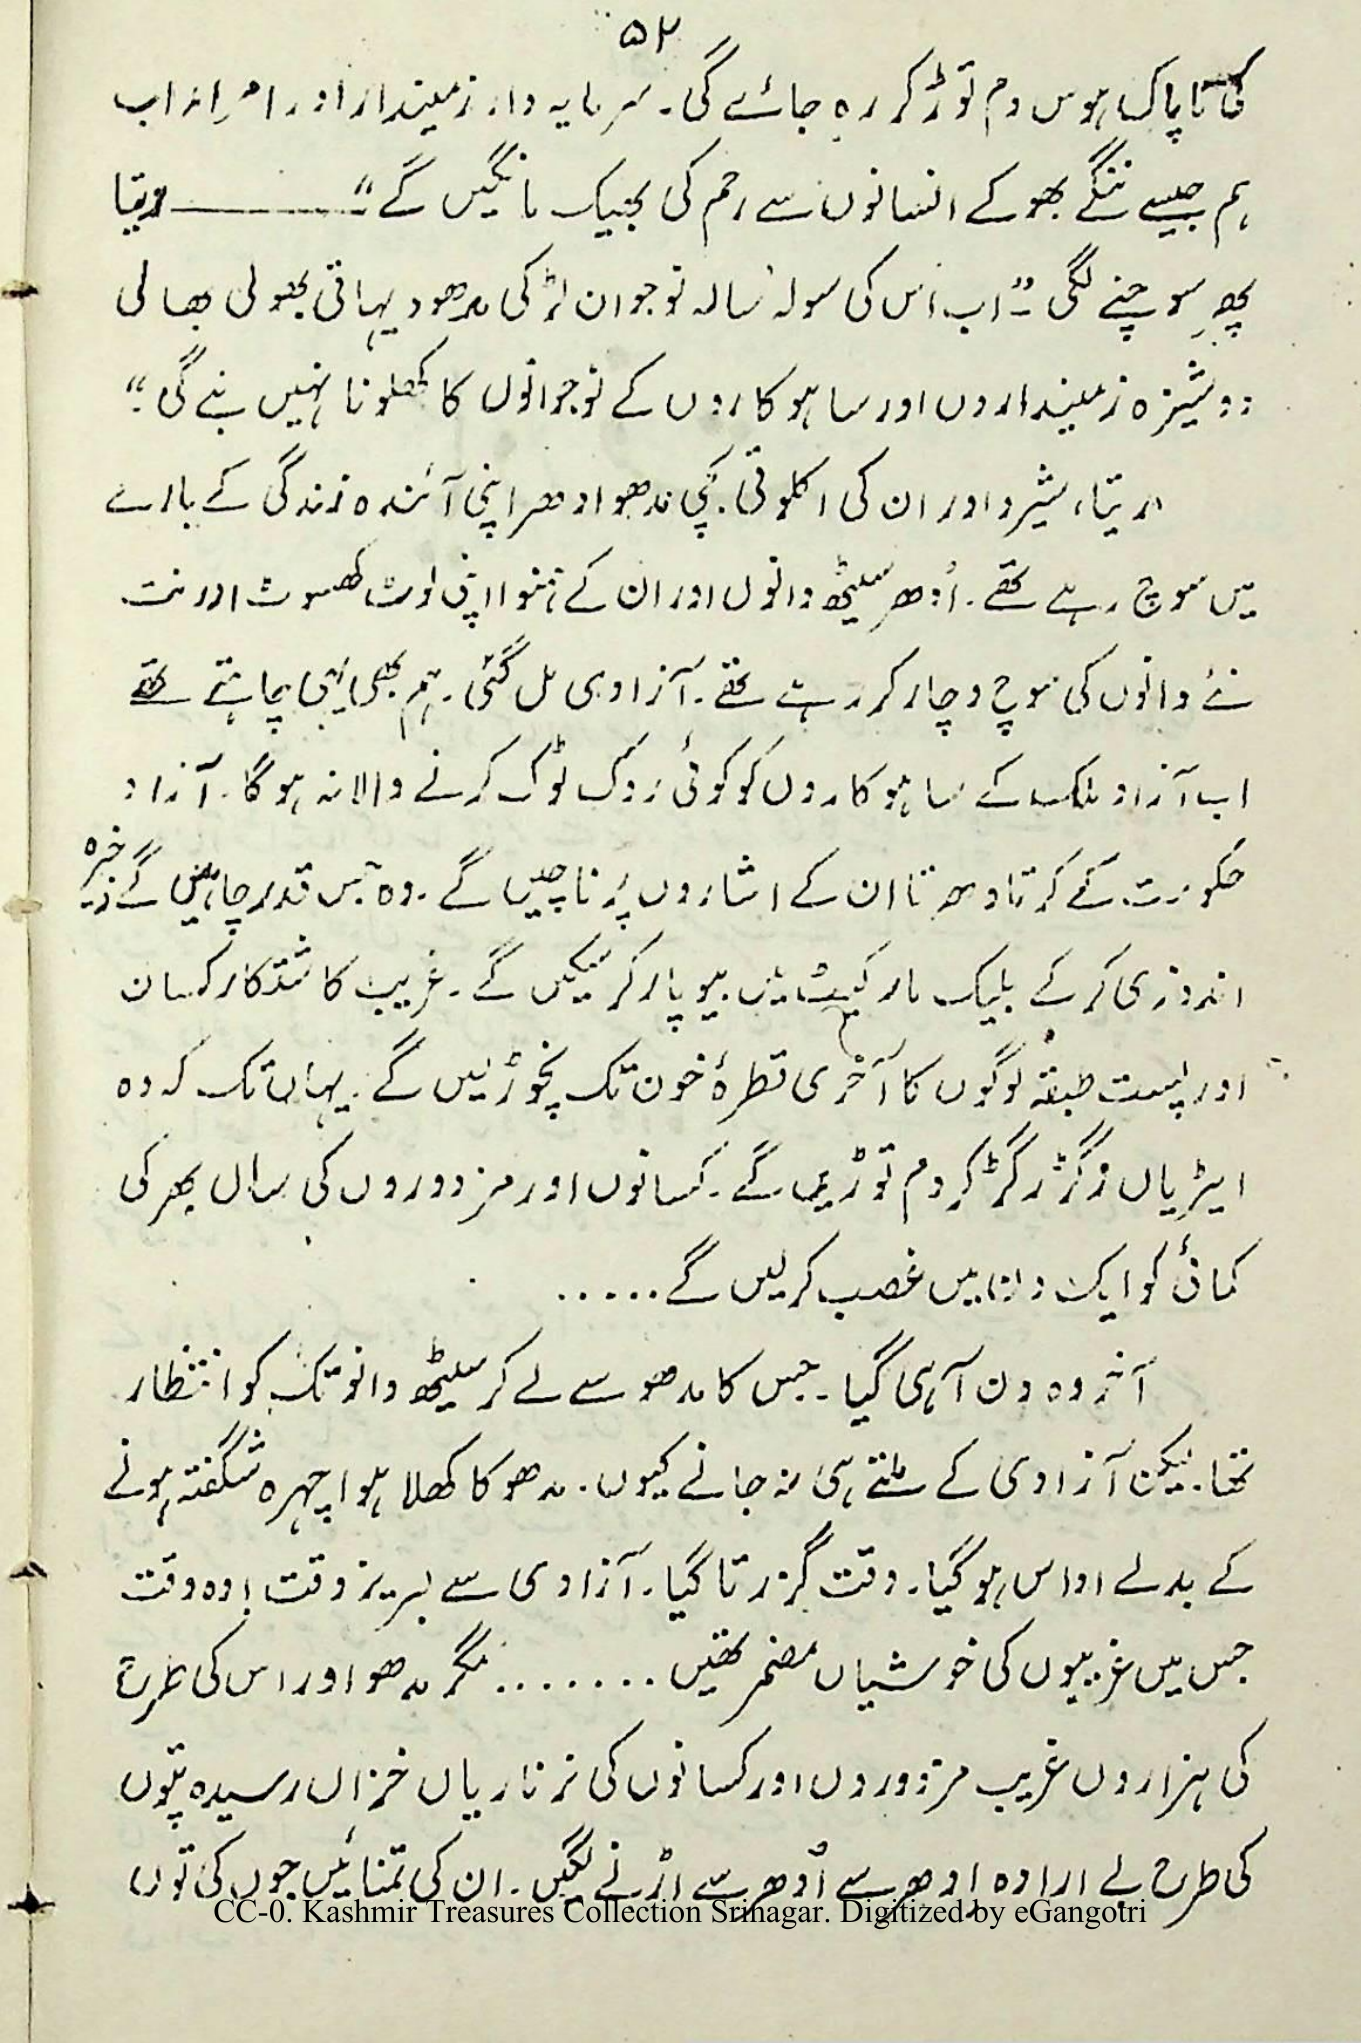 ۵۲
کی ناپاک ہوس دم توڑ کر رہ جائے گی۔ سرمایہ دار، زمیندار اور امراء اب
ہم جیسے ننگے بھوکے انسانوں سے رحم کی بھیک مانگیں گے“ ——— ریتا
پھر سوچنے لگی ”اب اس کی سولہ سالہ نوجوان لڑکی مدھو دیہاتی بھولی بھالی
دوشیزہ زمینداروں اور ساہوکاروں کے نوجوانوں کا کھلونا نہیں بنے گی“
ریتا، شیرو اور ان کی اکلوتی بچی مدھو ادھر اپنی آئندہ زندگی کے بارے
میں سوچ رہے تھے۔ اُدھر سیٹھ وانوں اور ان کے ہمنوا اپنی لوٹ کھسوٹ اور نت
نئے دانوں کی سوچ وچار کر رہے تھے۔ آزادی مل گئی۔ ہم بھی یہی چاہتے تھے
اب آزاد ملک کے ساہوکاروں کو کوئی روک ٹوک کرنے والا نہ ہوگا۔ آزاد
حکومت کے کرتا دھرتا ان کے اشاروں پر ناچیں گے۔ وہ جس قدر چاہیں گے ذخیرہ
اندوزی کر کے بلیک مارکیٹ میں بیوپار کر سکیں گے۔ غریب کاشتکار کسان
اور پست طبقہ لوگوں کا آخری قطرۂ خون تک نچوڑ لیں گے۔ یہاں تک کہ وہ
ایڑیاں رگڑ رگڑ کر دم توڑیں گے۔ کسانوں اور مزدوروں کی سال بھر کی
کمائی کو ایک دن میں غصب کر لیں گے.....
آخر وہ دن آ ہی گیا۔ جس کا مدھو سے لے کر سیٹھ وانو تک کو انتظار
تھا۔ لیکن آزادی کے ملتے ہی نہ جانے کیوں۔ مدھو کا کھلا ہوا چہرہ شگفتہ ہونے
کے بدلے اداس ہو گیا۔ وقت گزرتا گیا۔ آزادی سے لبریز وقت! وہ وقت
جس میں غریبوں کی خوشیاں مضمر تھیں ....... مگر مدھو اور اس کی طرح
کی ہزاروں غریب مزدوروں اور کسانوں کی نرناریاں خزاں رسیدہ پتوں
کی طرح بے ارادہ ادھر سے اُدھر سے اڑنے لگیں۔ ان کی تمنائیں جوں کی توں
CC-0. Kashmir Treasures Collection Srinagar. Digitized by eGangotri